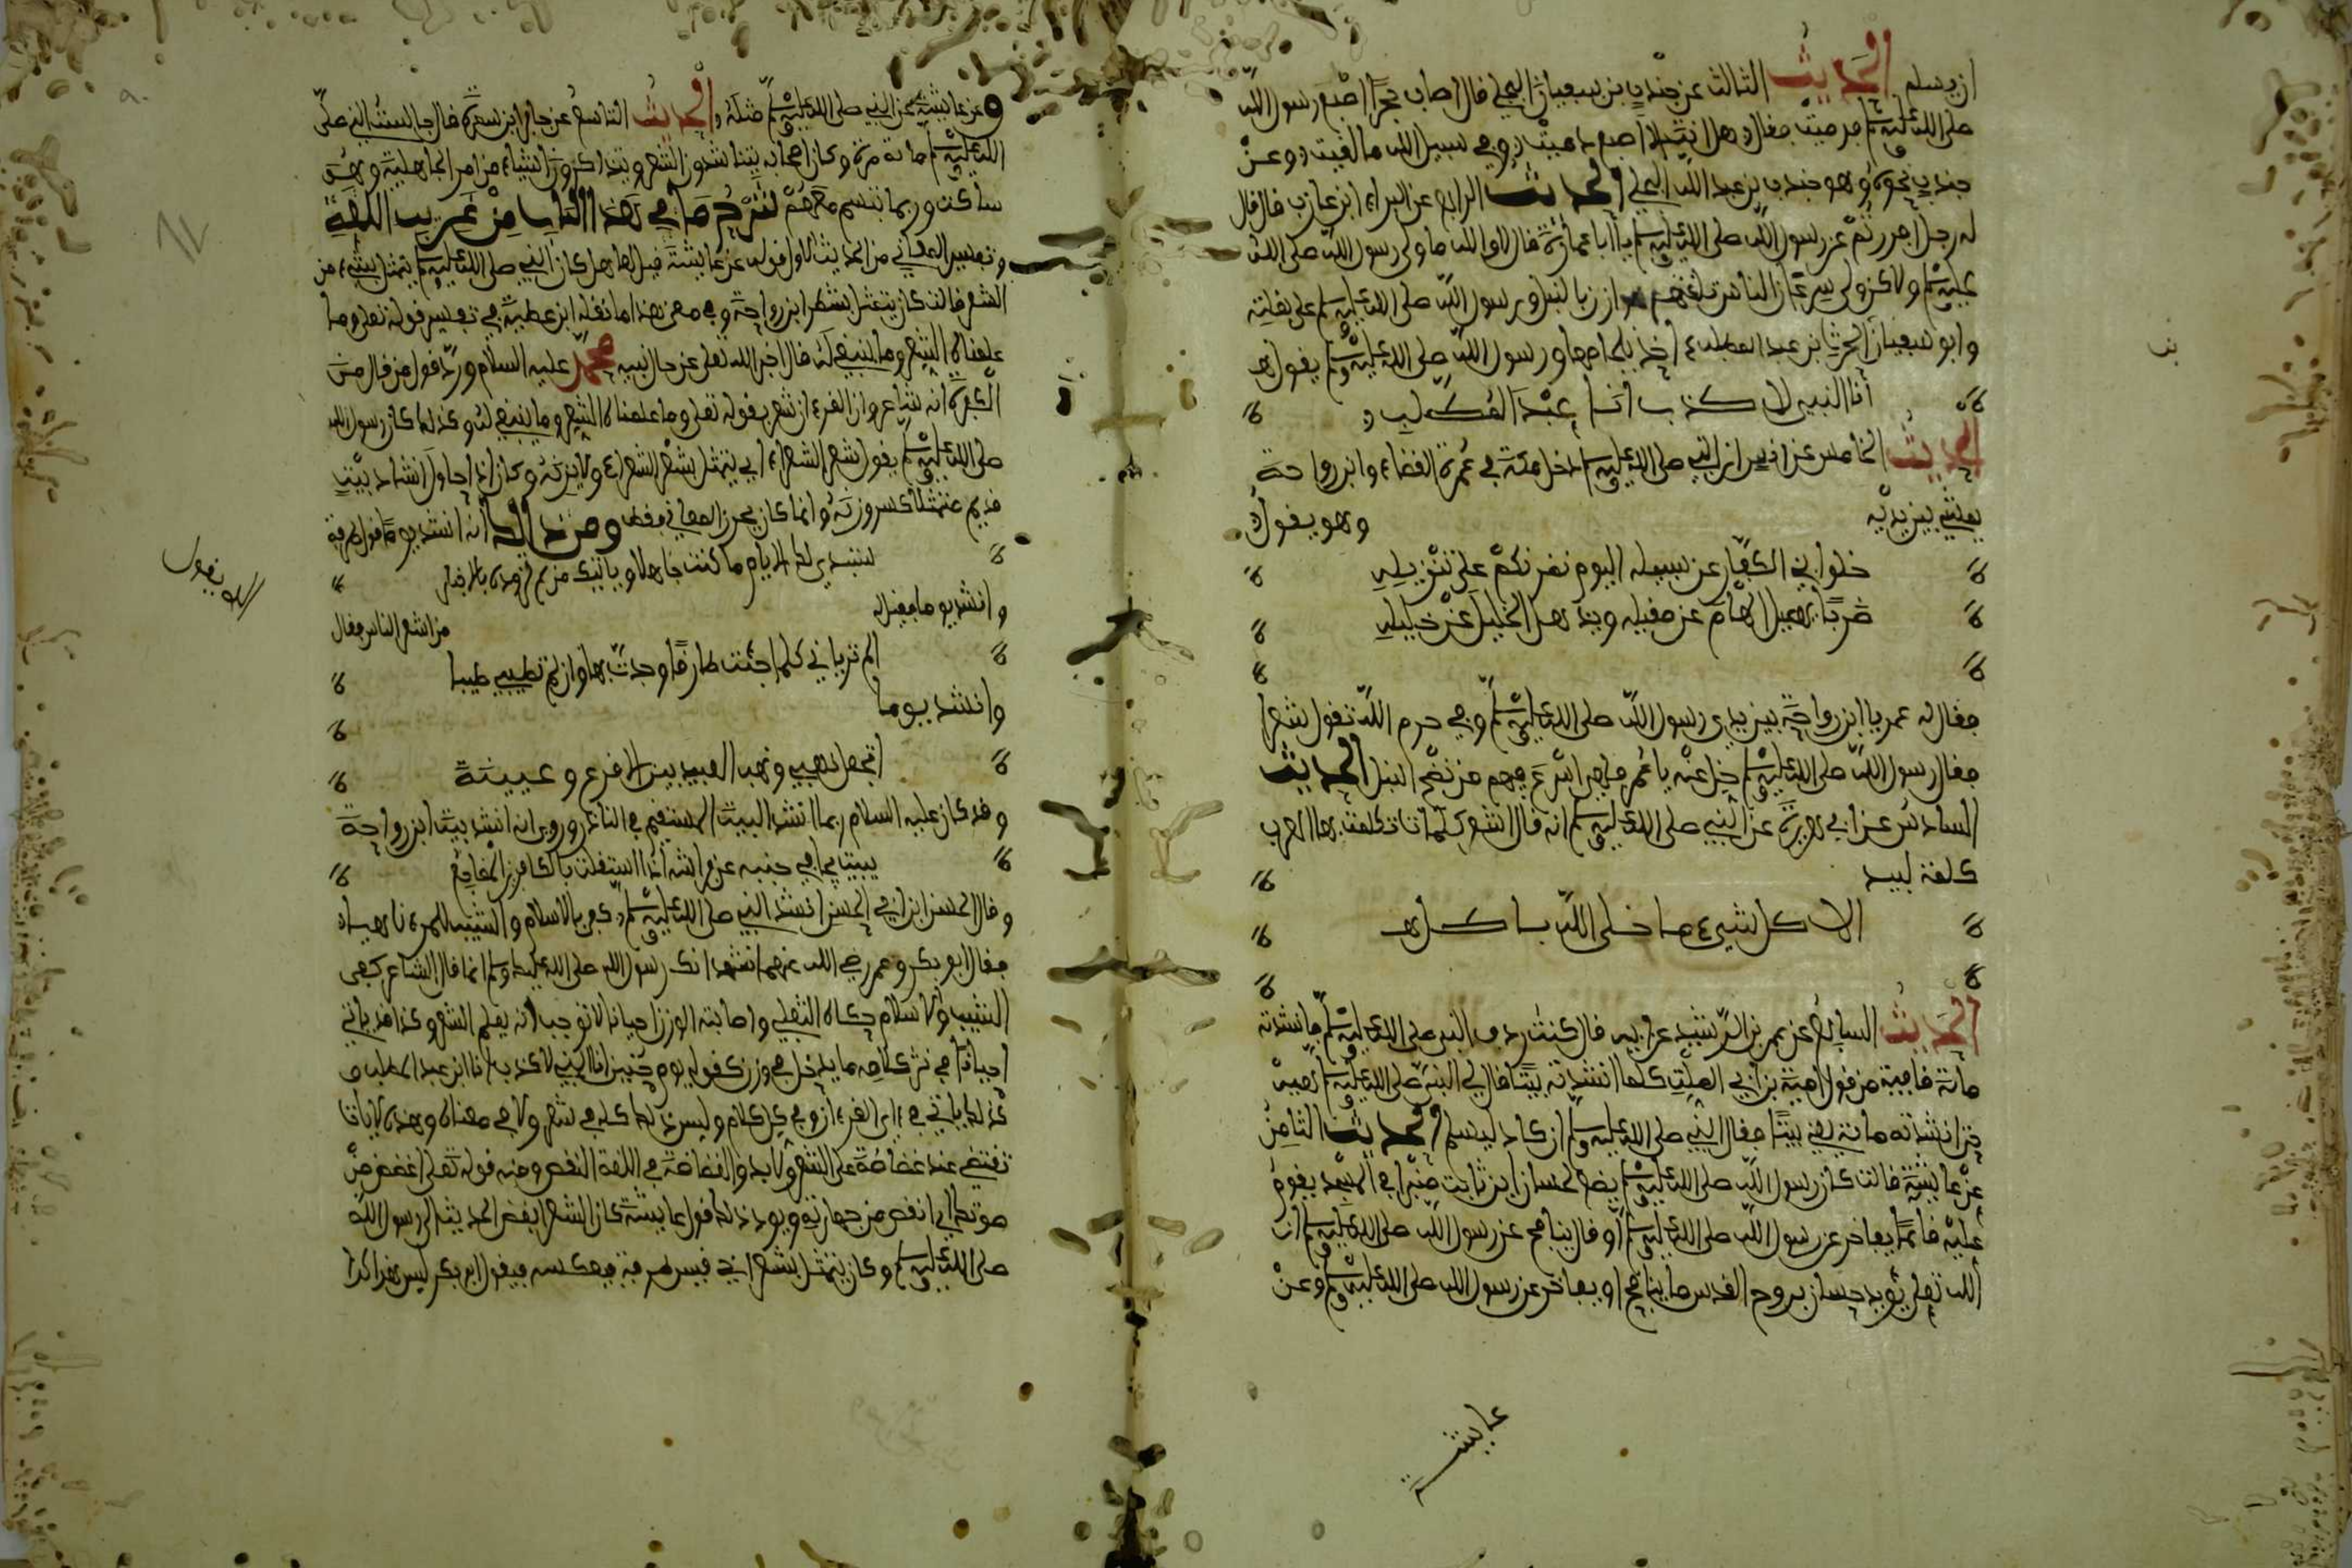 ان يسلم الحديث الثالث عن جندب بن سفيان البجلي قال اصاب حجرا اصبع رسول الله
صلى الله عليه وسلم فدميت فقال هل انت الا اصبع دميت وفي سبيل الله ما لقيت وعن
جندب نحوه وهو جندب بن عبد الله البجلي الحديث الرابع عن البراء ابن عازب قال قال
له رجل افررتم عن رسول الله صلى الله عليه وسلم يا ابا عمارة قال لا والله ما ولى رسول الله صلى الله
عليه وسلم ولاكن ولى سرعان الناس تلقتهم هوازن بالنبل ورسول الله صلى الله عليه وسلم على بغلته
وابو سفيان الحرث بن عبد المطلب اخذ بلجامها ورسول الله صلى الله عليه وسلم يقول
أنا النبي لا كذب انا ابن عبد المطلب
الحديث الخامس عن انس ان النبي صلى الله عليه وسلم دخل مكة في عمرة القضاء وابن رواحة
يمشي بين يديه وهو يقول
خلوا بني الكفار عن سبيله اليوم نضربكم على تنزيله
ضربا يزيل الهام عن مقيله ويذهل الخليل عن خليله
فقال له عمر يا ابن رواحة بين يدي رسول الله صلى الله عليه وسلم وفي حرم الله تقول شعرا
فقال رسول الله صلى الله عليه وسلم خل عنه يا عمر فلهي اسرع فيهم من نضح النبل الحديث
السادس عن ابي هريرة عن النبي صلى الله عليه وسلم انه قال اشعر كلمات تكلمت بها العرب
كلمة لبيد
الا كل شيء ما خلى الله باطل
الحديث السابع عن عمر بن الرشيد عن ابيه قال كنت ردف النبي صلى الله عليه وسلم فانشدته
مائة قافية من قول امية بن ابي الصلت كلما انشدته بيتا قال لي النبي صلى الله عليه وسلم هيه
حتى انشدته مائة يعني بيتا فقال النبي صلى الله عليه وسلم ان كاد ليسلم الحديث الثامن
عن عايشة قالت كان رسول الله صلى الله عليه وسلم يضع لحسان ابن ثابت منبرا في المسجد يقوم
عليه قائما يفاخر عن رسول الله صلى الله عليه وسلم او قال ينافح عن رسول الله صلى الله عليه وسلم ان
الله تعلى يؤيد حسان بروح القدس ما ينافح او يفاخر عن رسول الله صلى الله عليه وسلم وعن
عايشة
وعن عايشة عن النبي صلى الله عليه وسلم مثله والحديث التاسع عن جابر ابن سمرة قال جالست النبي صلى
الله عليه وسلم مائة مرة وكان اصحابه يتناشدون الشعر ويتذاكرون اشياء من امر الجاهلية وهو
ساكت وربما تبسم معهم شرح ما في هذا الباب من غريب اللغة
وتفسير المعاني من الحديث الاول قوله عن عايشة قيل لها هل كان النبي صلى الله عليه وسلم يتمثل بشيء من
الشعر قالت كان يتمثل بشعر ابن رواحة وفي معنى هذا ما نقله ابن عطية في تفسير قوله تعلى وما
علمناه الشعر وما ينبغي له قال اخبر الله تعلى عن حال نبيه محمد عليه السلام ورد قول من قال من
الكفرة انه شاعر وان القرءان شعر بقوله تعلى وما علمناه الشعر وما ينبغي له وكذلك كان رسول الله
صلى الله عليه وسلم يقول شعر الشعراء اي يتمثل بشعر الشعراء ولا يزنه وكان اذا حاول انشاد بيت
قديم متمثلا كسر وزنه وانما كان يحرز المعاني فقط ومن ذلك انه انشد يوما قول طرفة
ستبدي لك الايام ما كنت جاهلا وياتيك من لم تزوده بالاخبار
وانشد يوما من اشعر الناس فقال
الم ترياني كلما جئت طارقا وجدت بها وان لم تطيب طيبا
وانشد يوما
اتجعل نهبي ونهب العبيد بين الاقرع وعيينة
وقد كان عليه السلام ربما انشد البيت المستقيم في النادر وروي انه انشد بيت ابن رواحة
يبيت يجافي جنبه عن فراشه اذا استثقلت بالكافرين المضاجع
وقال الحسن ابن ابي الحسن انشد النبي صلى الله عليه وسلم كفى بالاسلام والشيب للمرء ناهيا
فقال ابو بكر وعمر رضي الله عنهما نشهد انك رسول الله صلى الله عليك وسلم انما قال الشاعر كفى
الشيب والاسلام حكاه الثعلبي واصابته الوزن احيانا لا توجب انه يعلم الشعر وكذا قد ياتي
احيانا في نثر كلامه ما يدخل في وزن كقوله يوم حنين انا النبي لا كذب انا ابن عبد المطلب و
كذلك ياتي في القرءان وفي كل كلام وليس ذلك كله في شعر ولا في معناه وهذه الاية
تقتضي عند غضاضة على الشعر ولابد والغضاضة في اللغة النقص ومنه قوله تعلى اغضض من
صوتك اي انقص من جهارته ويؤيد ذلك قول عايشة كان الشعر ابغض الحديث الى رسول الله
صلى الله عليه وسلم وكان يتمثل بشعر اخي قيس طرفة فيعكسه فيقول ابو بكر ليس هكذا